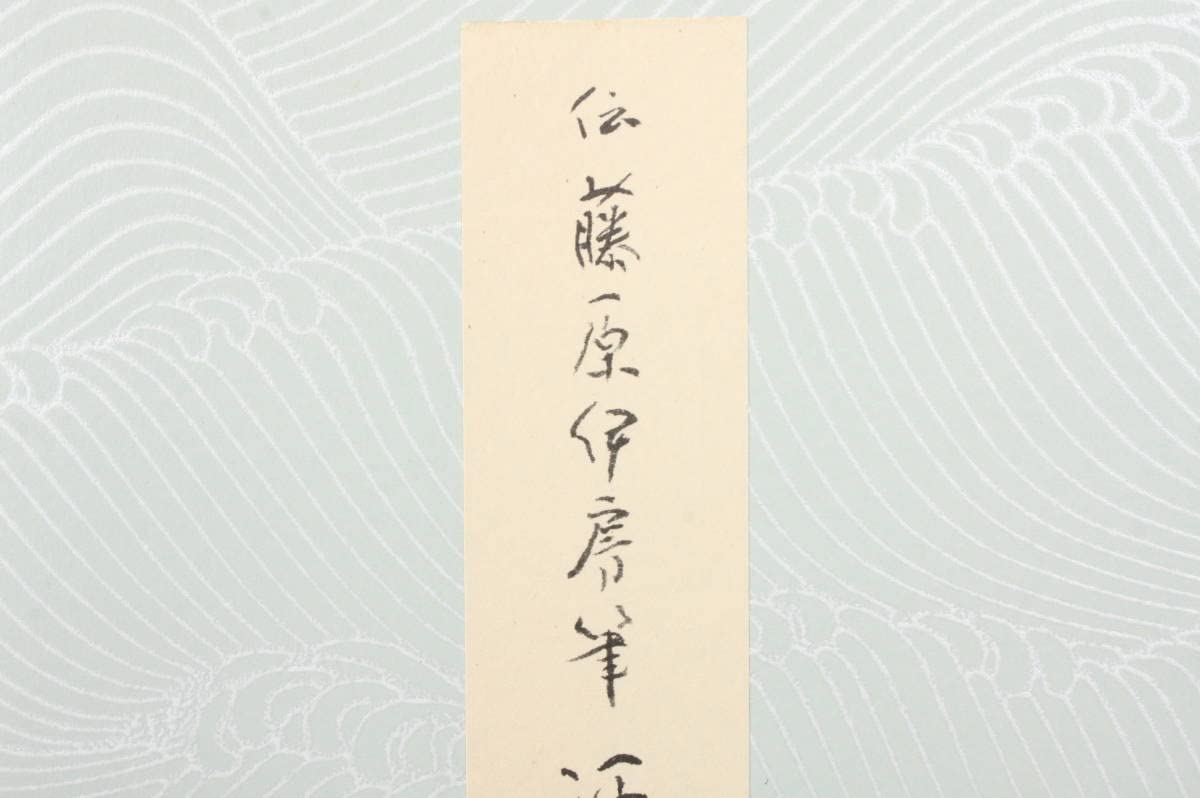 伝藤原伊房筆